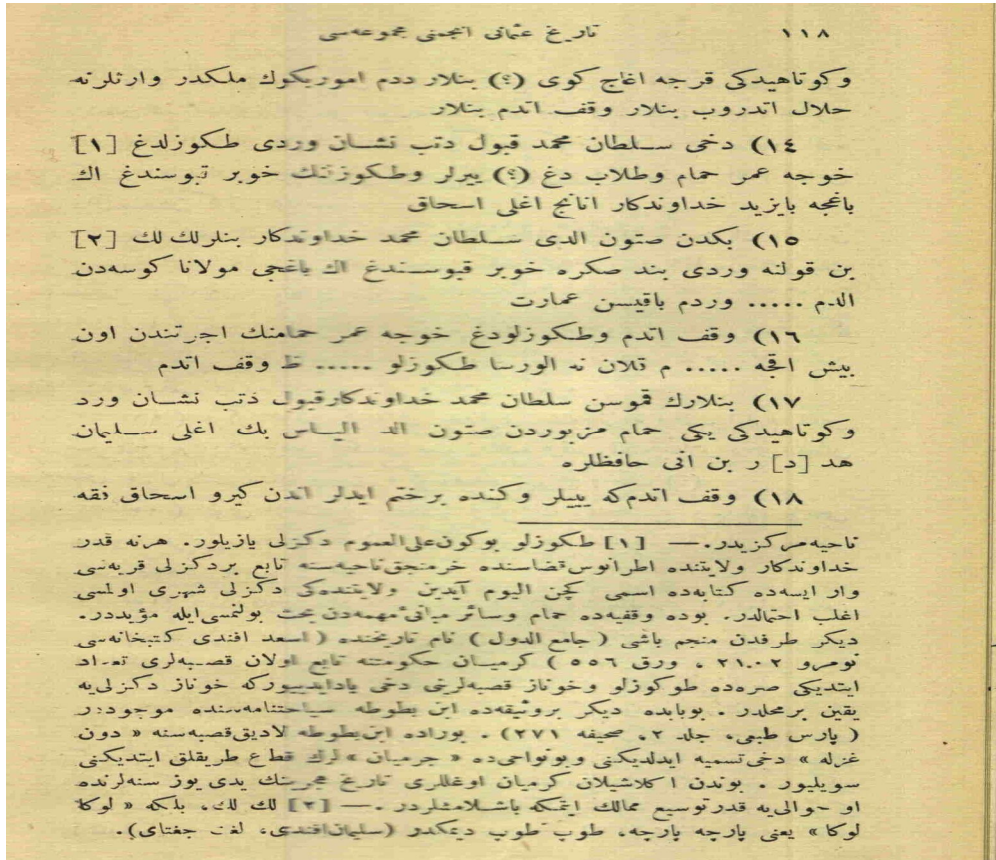 ١١٨ تاریخ عثمانی انجمنی مجموعه‌سی
وکوتاهیدکی قرجه اغاج کوی (؟) بنلار ددم اموریکوك ملکدر وارثلرته
حلال اتدروب بنلار وقف اتدم بنلار
١٤) دخی سلطان محمد قبول دتب نشان وردی طکوزلدغ [١]
خوجه عمر حمام وطلاب دغ (؟) ییرلر وطکوزنك خوبر تپوسندغ اك
باغجه بایزید خداوندکار انانج اغلی اسحاق
١٥) بکدن صتون الدی سلطان محمد خداوندکار بنلرلك لك [٢]
بن قولنه وردی بند صکره خوبر قپوسندغ اك باغجی مولانا کوسه‌دن
الدم ..... وردم باقیسن عمارت
١٦) وقف اتدم وطکوزلودغ خوجه عمر حمامنك اجرتندن اون
بیش اقجه ..... م قلان نه الورسا طکوزلو ..... ظ وقف اتدم
١٧) بنلارك قموسن سلطان محمد خداوندکار قبول دتب نشان ورد
وکوتاهیدکی یکی حمام مزبوردن صتون الد الیاس بك اغلی سلیمان
هد [د] ر بن انی حافظلره
١٨) وقف اتدم که ییلر وکنده برختم ایدلر اندن کیرو اسحاق فقه
ناحیه مرکزیدر. — [١] طکوزلو بوکون علی‌العموم دکزلی یازیلور. هرنه قدر
خداوندکار ولایتنده اطرانوس قضاسنده خرمنجق ناحیه‌سنه تابع بردکزلی قریه‌سی
وار ایسه‌ده کتابه‌ده اسمی کچن الیوم آیدین ولایتنده‌کی دکزلی شهری اولمسی
اغلب احتمالدر. بوده وقفیه‌ده حمام وسائر مبانئ مهمه‌دن بحث بولنمسی ایله مؤیددر.
دیکر طرفدن منجم باشی (جامع الدول) نام تاریخنده (اسعد افندی کتبخانه‌سی
نومرو ٢١٠٢، ورق ٥٥٦) کرمیان حکومتنه تابع اولان قصبه‌لری تعداد
ایتدیکی صره‌ده طوکوزلو وخوناز قصبه‌لرینی دخی یادایدییورکه خوناز دکزلی‌یه
یقین برمحلدر. بوبابده دیکر بروثیقه‌ده ابن بطوطه سیاحتنامه‌سنده موجوددر
(پارس طبعی، جلد ٢، صحیفه ٢٧١). بوراده ابن بطوطه لادیق قصبه‌سنه « دون
غزله » دخی تسمیه ایدلدیکنی وبونواحی‌ده « جرمیان » لرك قطاع طریقلق ایتدیکنی
سویلیور. بوندن اکلاشیلان کرمیان اوغللری تاریخ هجرینك یدی یوز سنه‌لرنده
او حوالی‌یه قدر توسیع ممالك ایتمکه باشلامشلردر. — [٢] لك لك، بلکه « لوکا
لوکا » یعنی پارچه پارچه، طوپ طوپ دیمکدر (سلیمان افندی، لغت جغتای).